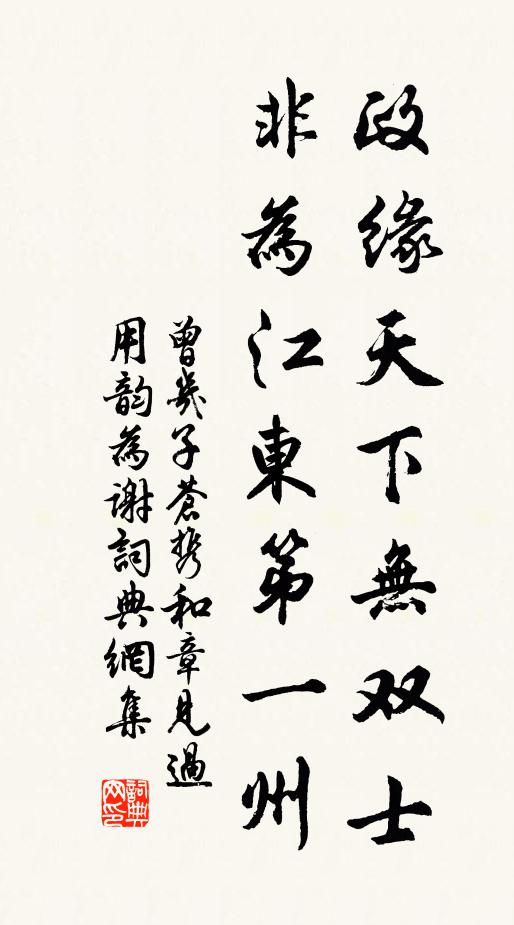 政缘天下無双士
非為江東第一州
曾幾子蒼携和章見過
用韵為謝詞典網集
詞典网印